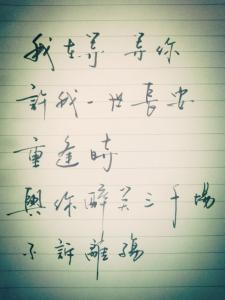 我在等 等你
許我一世長安
重逢時
與你醉笑三千場
不訴離殤